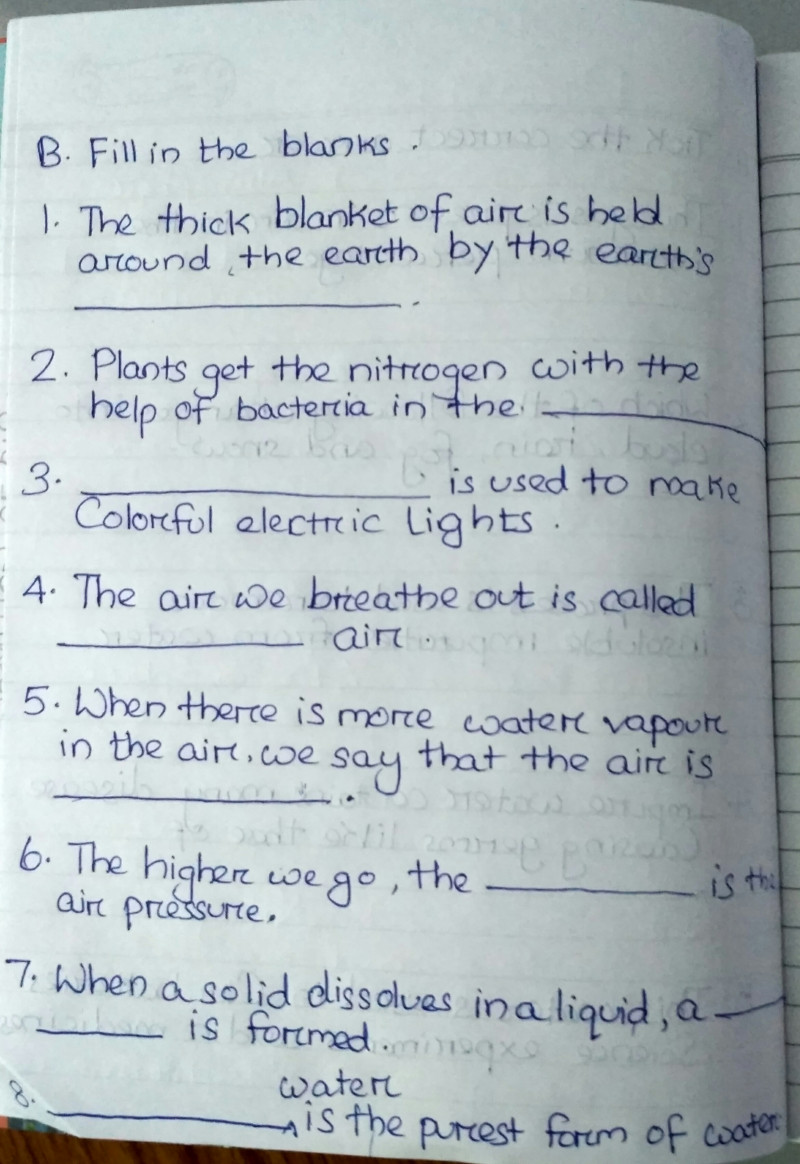 B. Fill in the blanks.
1. The thick blanket of air is held
around, the earth by the earth's
____________.
2. Plants get the nitrogen with the
help of bacteria in the ____________
3. ____________ is used to make
Colorful electric Lights.
4. The air we breathe out is called
____________ air.
5. When there is more water vapour
in the air, we say that the air is
____________.
6. The higher we go, the ____________ is the
air pressure.
7. When a solid dissolves in a liquid, a ____
____________ is formed.
water
8. ____________ is the purest form of water